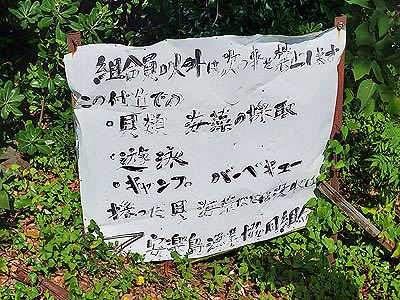 組合員以外は次の事を禁止します
この付近での
・貝類 海藻の採取
・遊泳
・キャンプ バーベキュー
採った貝 海藻など
漁業協同組合